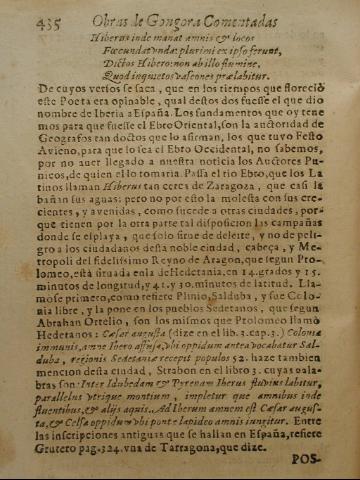 435 Obras de Gongora Comentadas
Hiberus inde manat amnis & locos
Fœcundat vnda: plurimi ex ipso ferunt,
Dictos Hibero: non ab illo flumine,
Quod inquietos vascones prælabitur.
De cuyos versos se saca, que en los tiempos que florecio
este Poeta era opinable, qual destos dos fuesse el que dio
nombre de Iberia a España. Los fundamentos que oy tene
mos para que fuesse el Ebro Oriental, son la auctoridad de
Geografos tan doctos que lo afirman, los que tuvo Festo
Avieno, para que lo sea el Ebro Occidental, no sabemos,
por no aver llegado a nuestra noticia los Auctores Pu-
nicos, de quien el lo tomaria. Passa el rio Ebro, que los La
tinos llaman Hiberus tan cerca de Zaragoza, que casi la
bañan sus aguas: pero no por esto la molesta con sus cre-
cientes, y avenidas, como sucede a otras ciudades, por-
que tienen por la otra parte tal disposicion las campañas
donde se esplaya, que solo sirue de deleite, y no de peli-
gro a los ciudadanos desta noble ciudad, cabeça, y Me-
tropoli del fidelissimo Reyno de Aragon, que segun Pto-
lomeo, està situada en la de Hedetania, en 14. grados y 15.
minutos de longitud, y 41. y 30. minutos de latitud. Lla-
mose primero, como refiere Plinio, Salduba, y fue Colo-
nia libre, y la pone en los pueblos Sedetanos, que segun
Abrahan Ortelio, son los mismos que Ptolomeo llamò
Hedetanos: Cæsar augusta (dize en el lib. 3. cap. 3.) Colonia
immunis, amne Ibero affusa, vbi oppidum antea vocabatur Sal-
duba, regionis Sedetaniæ recepit populos 52. haze tambien
mencion desta ciudad, Strabon en el libro 3. cuyas pala-
bras son: Inter Idubedam & Pyrenam Iberus fluvius labitur,
parallelus vtrique montium, impletur que amnibus inde
fluentibus, & alijs aquis. Ad Iberum amnem est Cæsar augus-
ta, & Celsa oppidum vbi ponte lapideo amnis iungitur. Entre
las inscripciones antiguas que se hallan en España, refiere
Grutero pag. 324. vna de Tarragona, que dize.
POS-